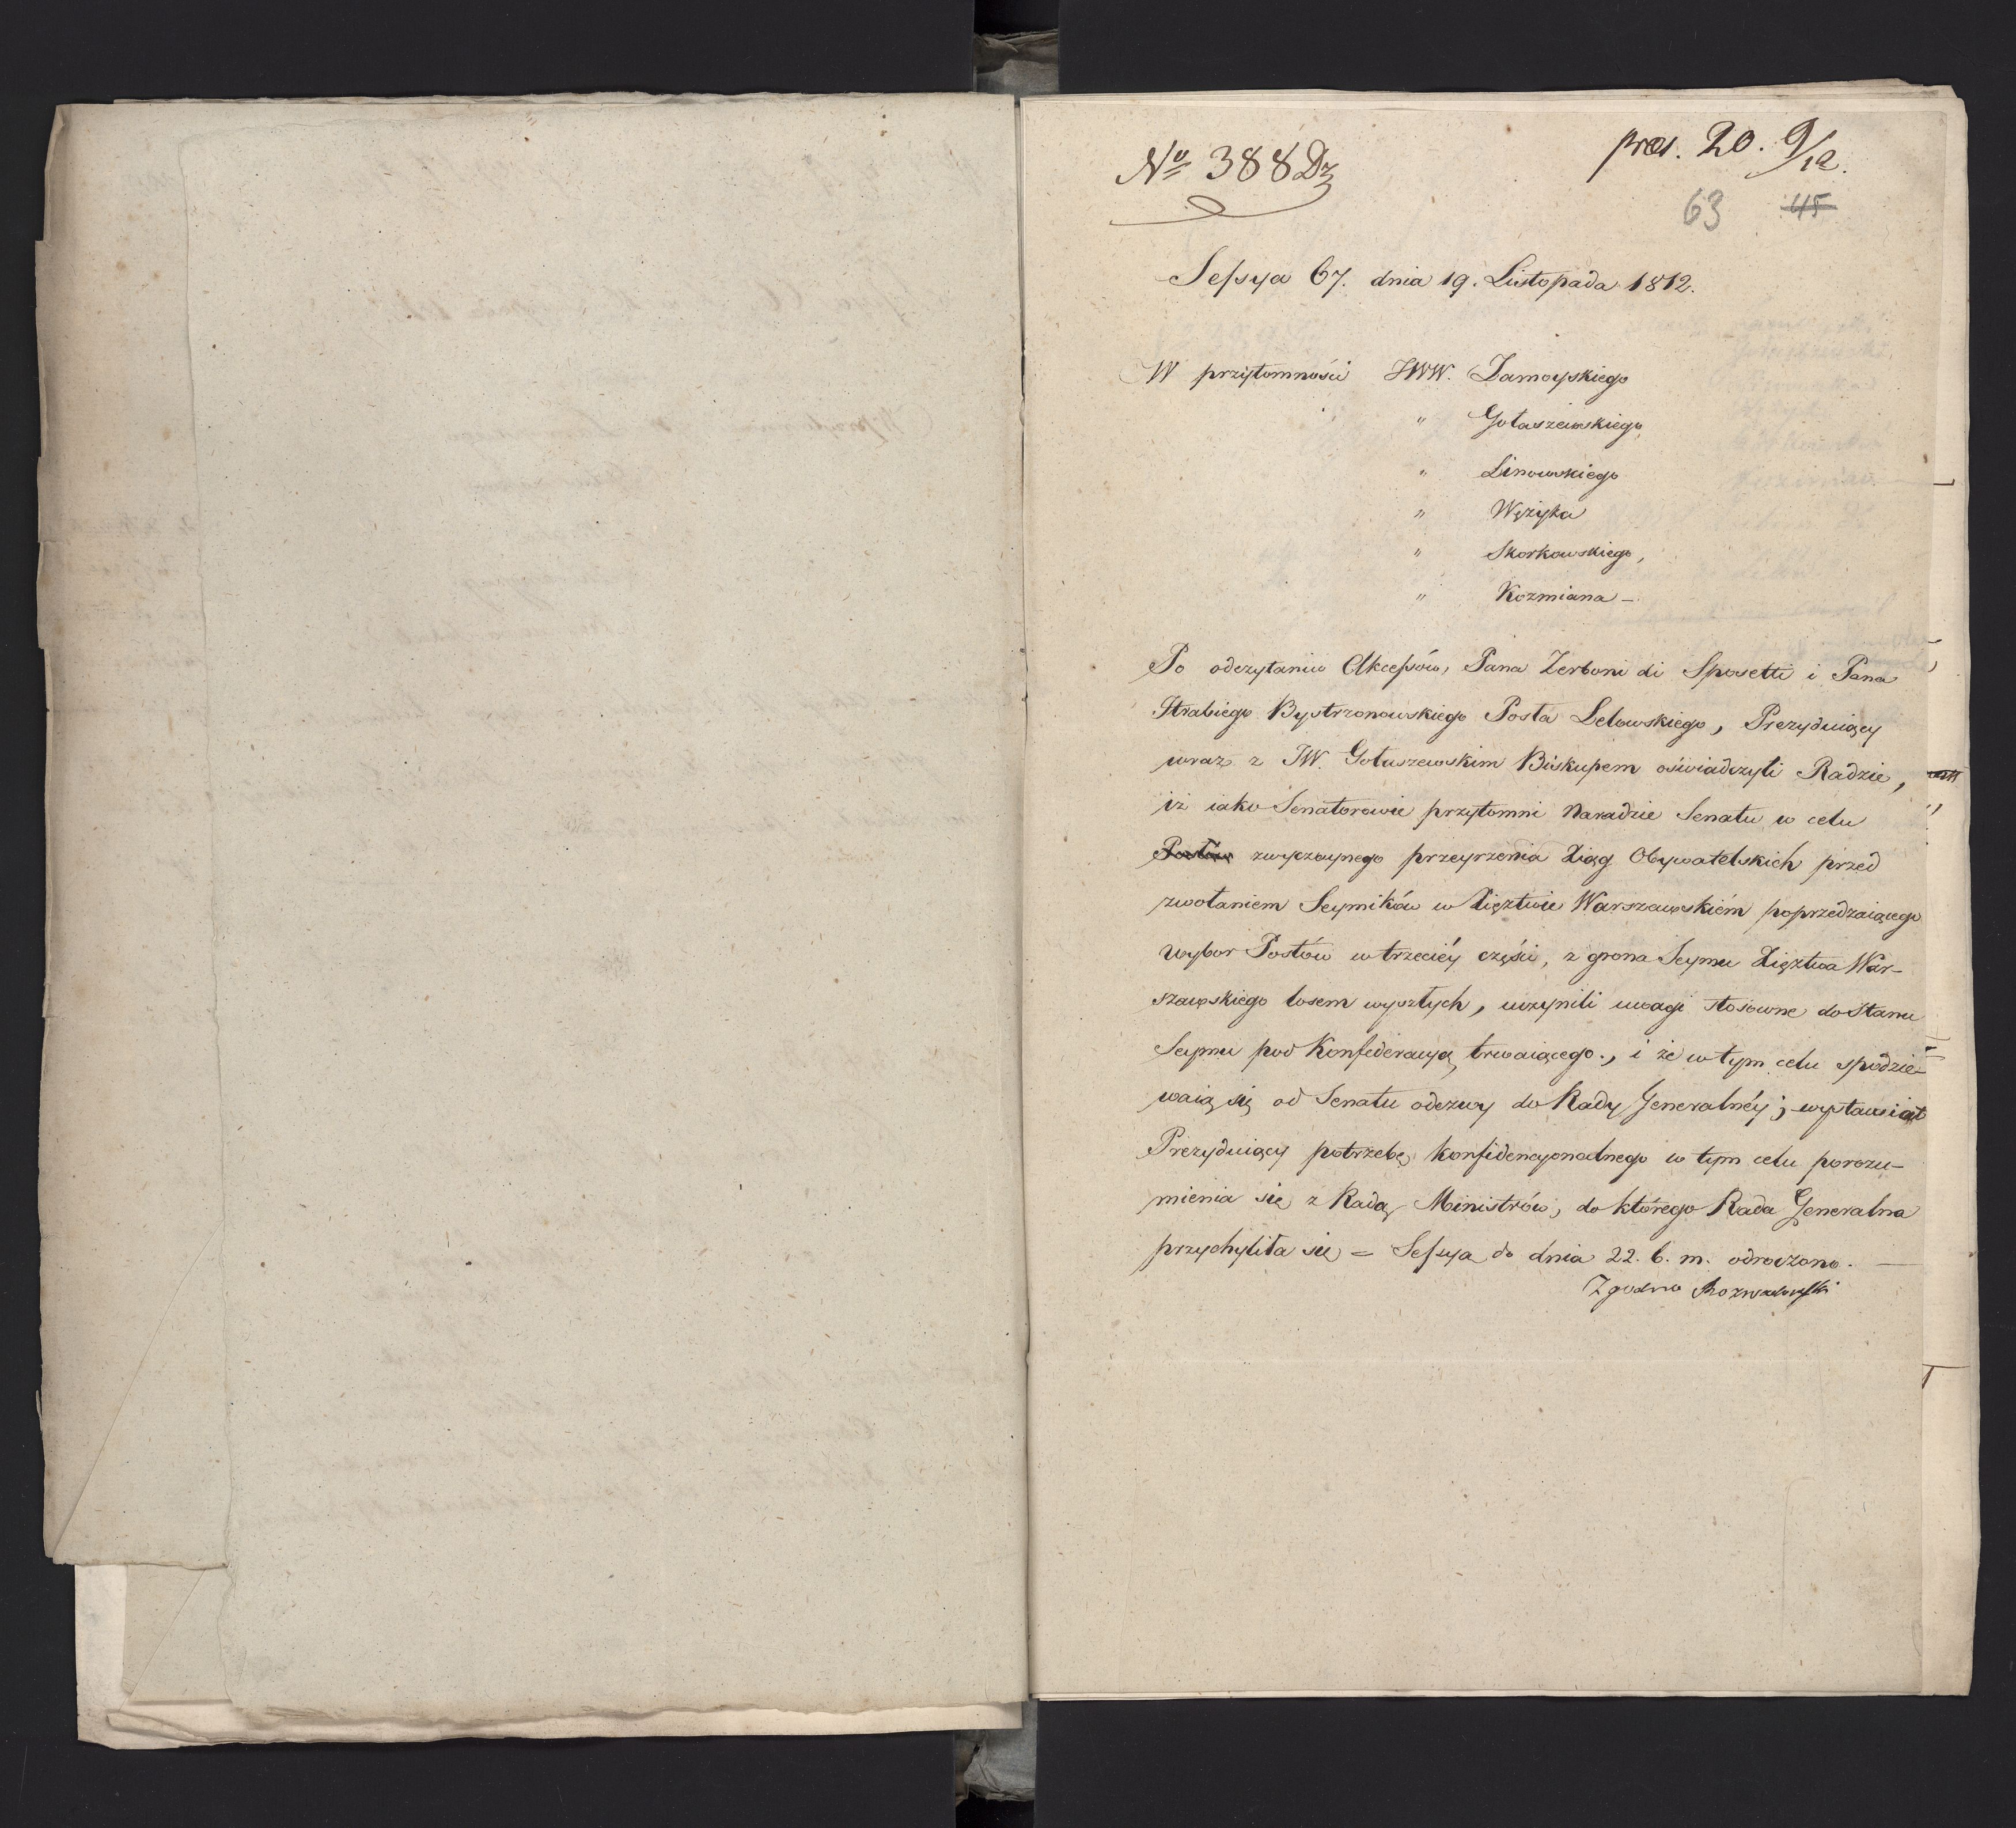 Nº 388 Dz
pres. 20. 9/12.
63 45
Sessya 67. dnia 19. Listopada 1812.
W przytomności JWW. Zamoyskiego
" Gołaszewskiego,
" Linowskiego
" Wężyka
" Skorkowskiego,
" Kozmiana -
Po odczytaniu Akcessów, Pana Zerboni di Sposetti i Pana
Hrabiego Bystrzonowskiego Posła Lelowskiego, Prezyduiący
wraz z JW. Gołaszewskim Biskupem oświadczyli Radzie,
iż iako Senatorowie przytomni Naradzie Senatu w celu
Posłów zwyczaynego przeyrzenia Xiąg Obywatelskich przed
zwołaniem Seymików w Xięztwie Warszawskiém poprzedzaiącego
wybor Posłów w trzeciéy części, z grona Seymu Xięztwa War-
szawskiego losem wyszłych, uczynili uwagi stosowne do Stanu
Seymu pod Konfederacyą trwaiącego., i że w tym celu spodzie-
waią się od Senatu odezwy do Rady Generalnéy; wystawiał
Prezyduiący potrzebę konfidencyonalnego w tym celu porozu-
mienia się z Radą Ministrów, do którego Rada Generalna
przychyliła się = Sessya do dnia 22. b. m. odroczono. —
Zgodno Rozwadowski